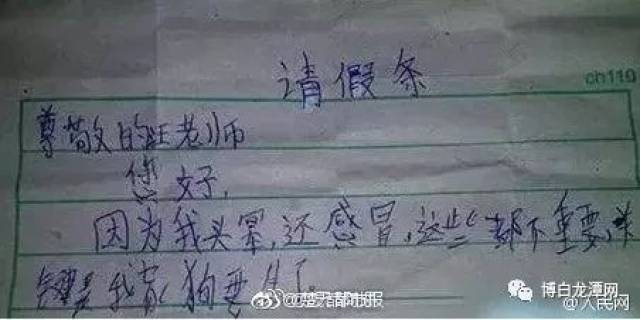 请假条
ch119
尊敬的旺老师
您好,
因为我头晕,还感冒,这些都不重要,关
键是我家狗要生了.
@楚天都市报
博白龙潭网
@人民网